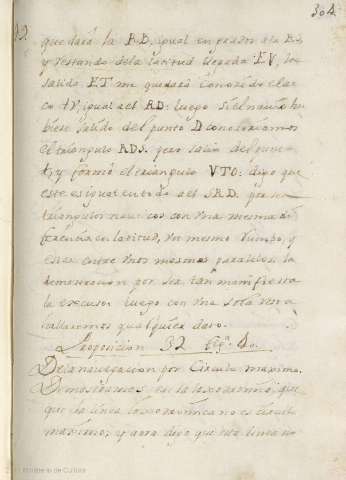 304
que dará la RD, igual en razon a la Rs
y restando de la latitud llegada EV, la
salida ET me quedará conocido el ar
co tV, igual al RD: luego si el navio hu
biese salido del punto D conoceriamos
el triangulo RDS. pero salio del punto
t, y formó el triangulo VTO: digo que
este es igual en todo al SRD. por ser
triangulos nauticos con una mesma di
ferencia en latitud, un mesmo rumbo, y
estar entre unos mesmos paralelos, la
demostracion por ser tan manifiesta
la escuso: luego con una sola
hallaremos qualquier dato.
Proposicion 32 fig.ª 40.
De la navegacion por Circulo maximo.
Demostramos en la loxodromia, que
que la linea loxodromica no es circulo
maximo; y aora digo que esta linea no
Ministerio de Cultura